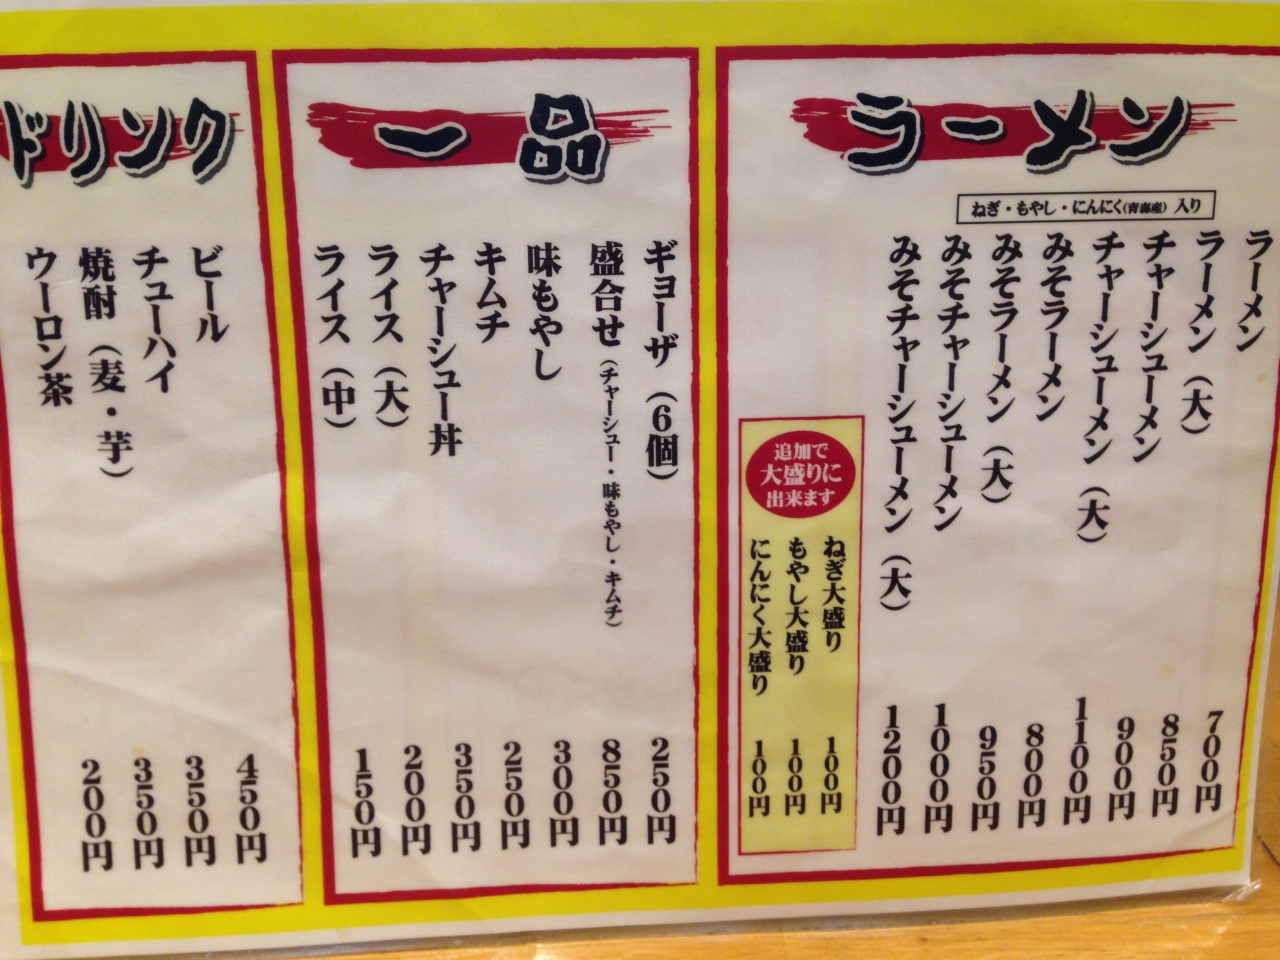 ラーメン
ねぎ・もやし・にんにく(青森産) 入り
ラーメン 700円
ラーメン(大) 850円
チャーシューメン 900円
チャーシューメン(大) 1100円
みそラーメン 800円
みそラーメン(大) 950円
みそチャーシューメン 1000円
みそチャーシューメン(大) 1200円
追加で
大盛りに
出来ます
ねぎ大盛り 100円
もやし大盛り 100円
にんにく大盛り 100円
一品
ギョーザ(6個) 250円
盛合せ(チャーシュー・味もやし・キムチ) 850円
味もやし 300円
キムチ 250円
チャーシュー丼 350円
ライス(大) 200円
ライス(中) 150円
ドリンク
ビール 450円
チューハイ 350円
焼酎(麦・芋) 350円
ウーロン茶 200円